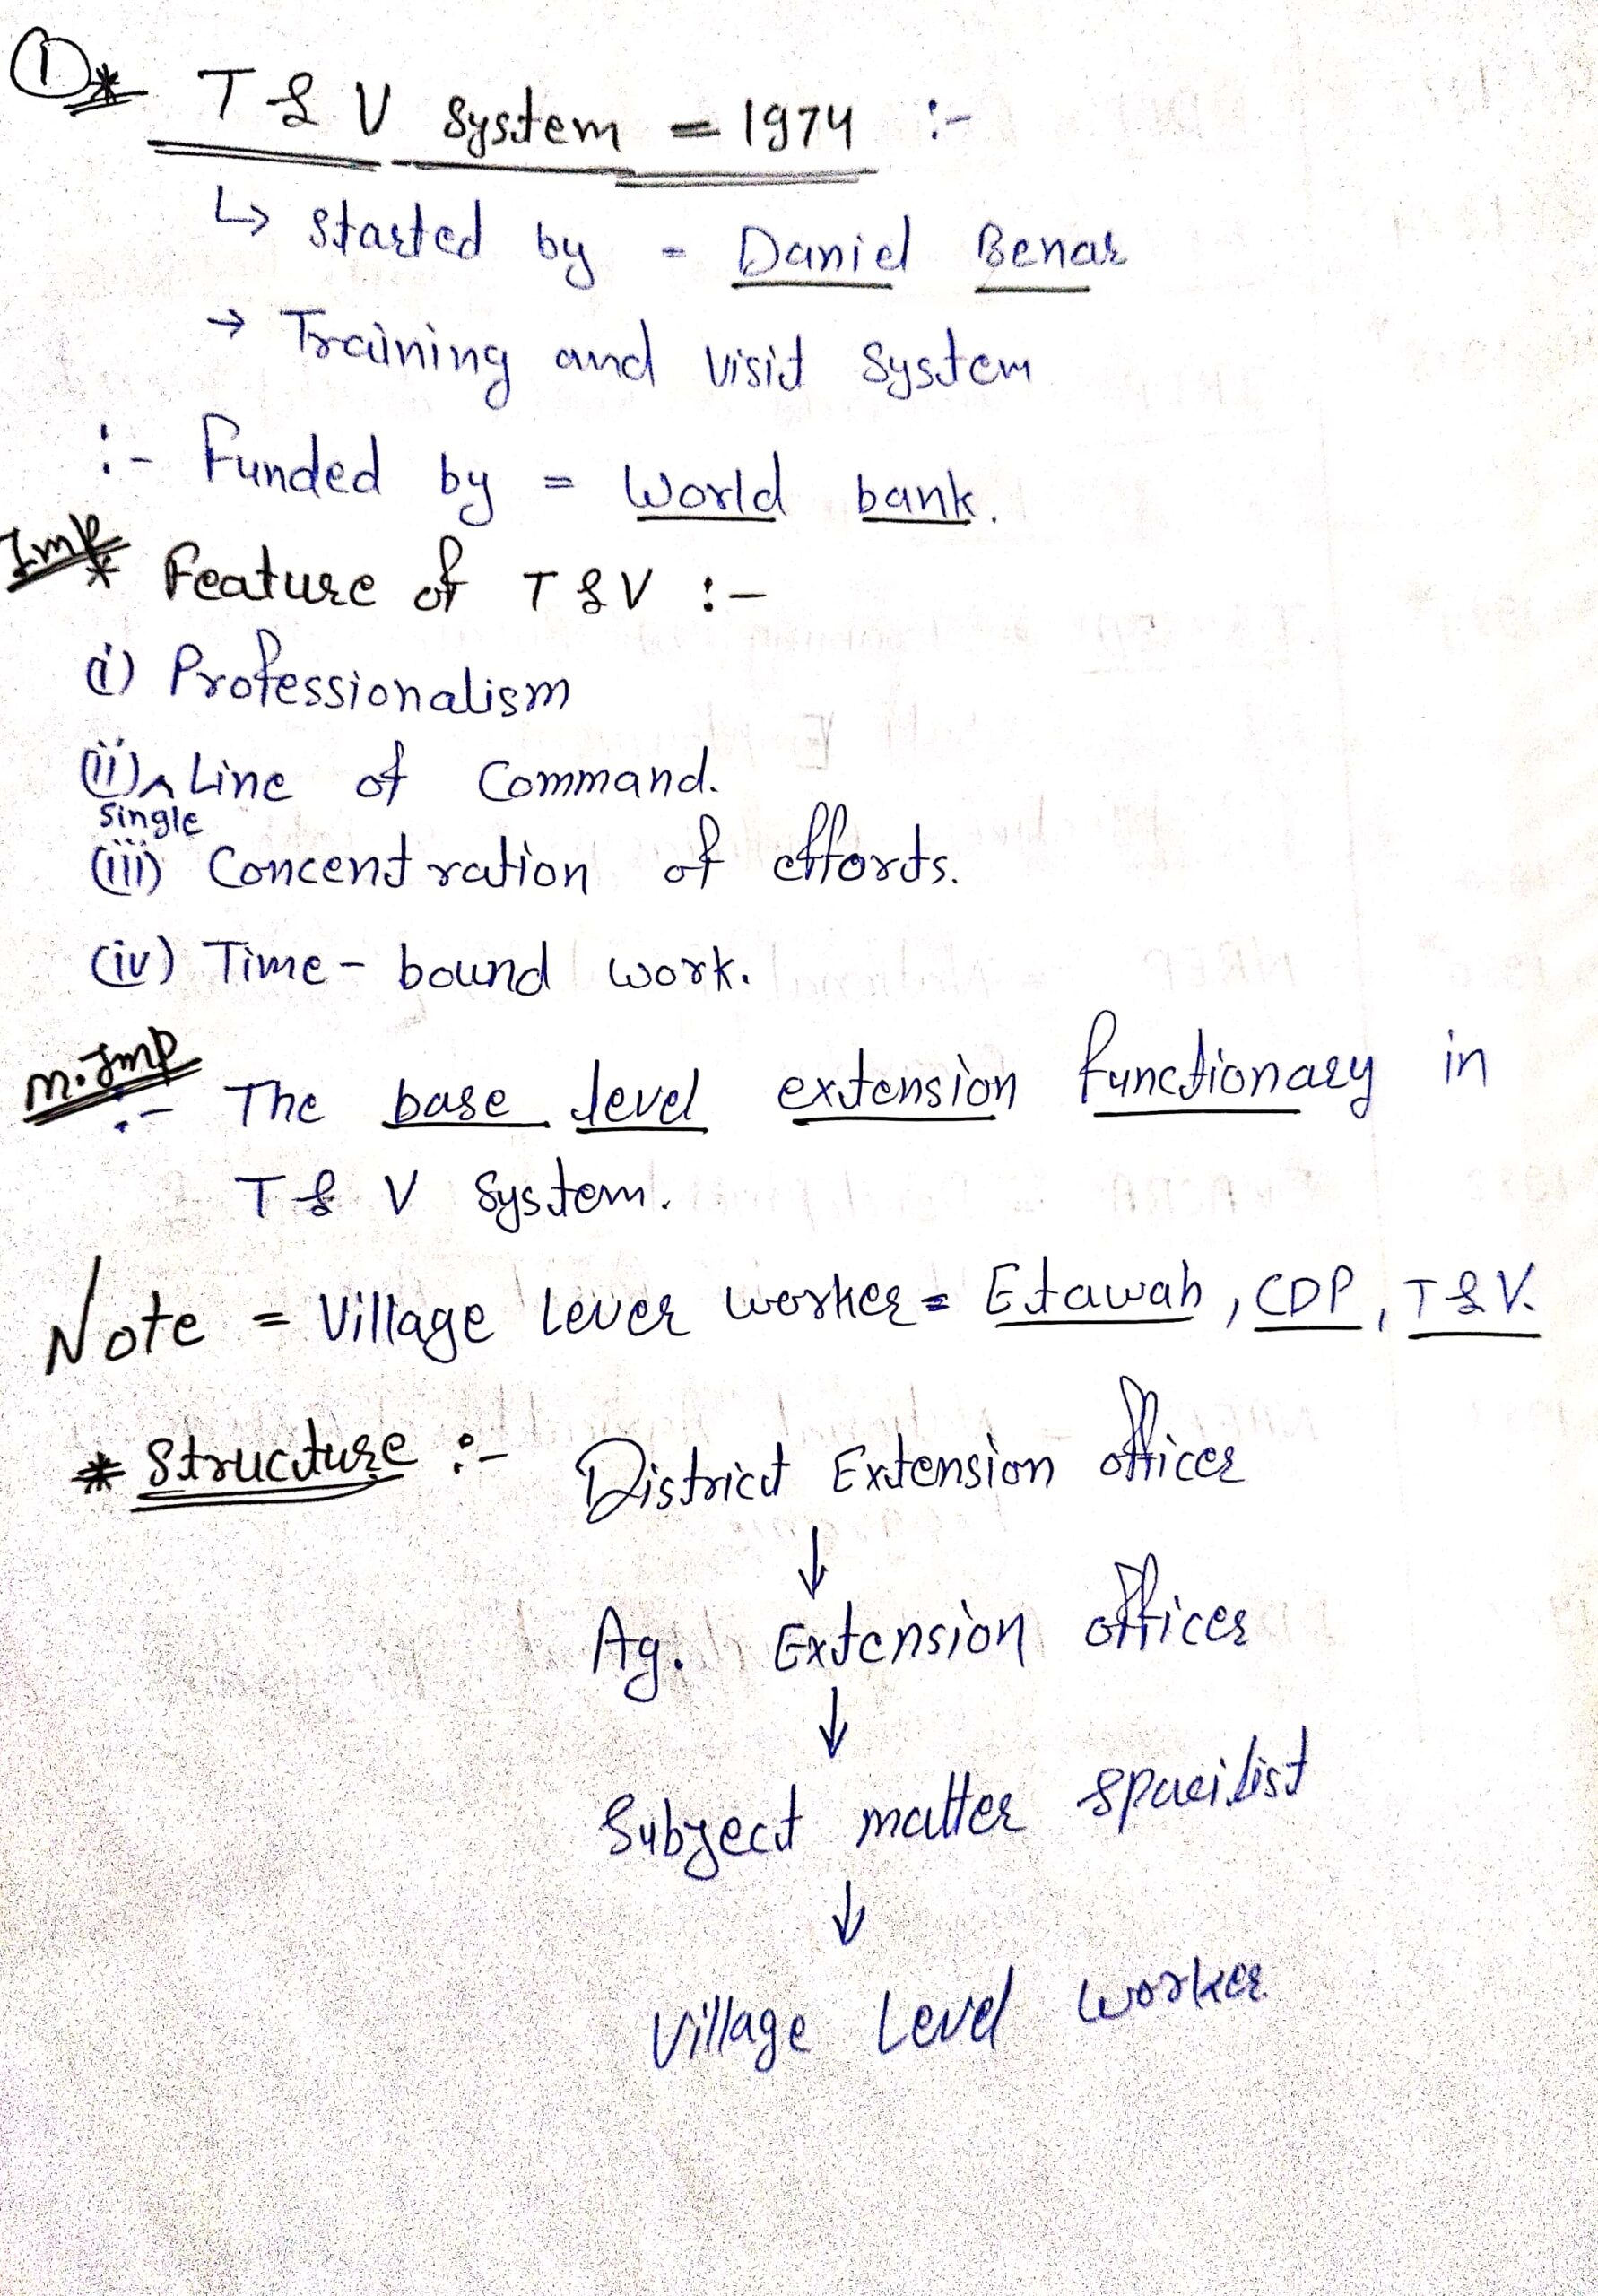 ① * T & V System = 1974 :-
↳ Started by = Daniel Benar
→ Training and visit System
:- Funded by = World bank.
Imp * Feature of T & V :-
(i) Professionalism
(ii) ^ Line of Command.
Single
(iii) Concentration of efforts.
(iv) Time - bound work.
M. Imp :- The base level extension functionary in
T & V System.
Note = Village Lever worker = Etawah, CDP, T & V.
* Structure :- District Extension officer
↓
Ag. Extension officer
↓
Subject matter spacilist
↓
Village Level worker